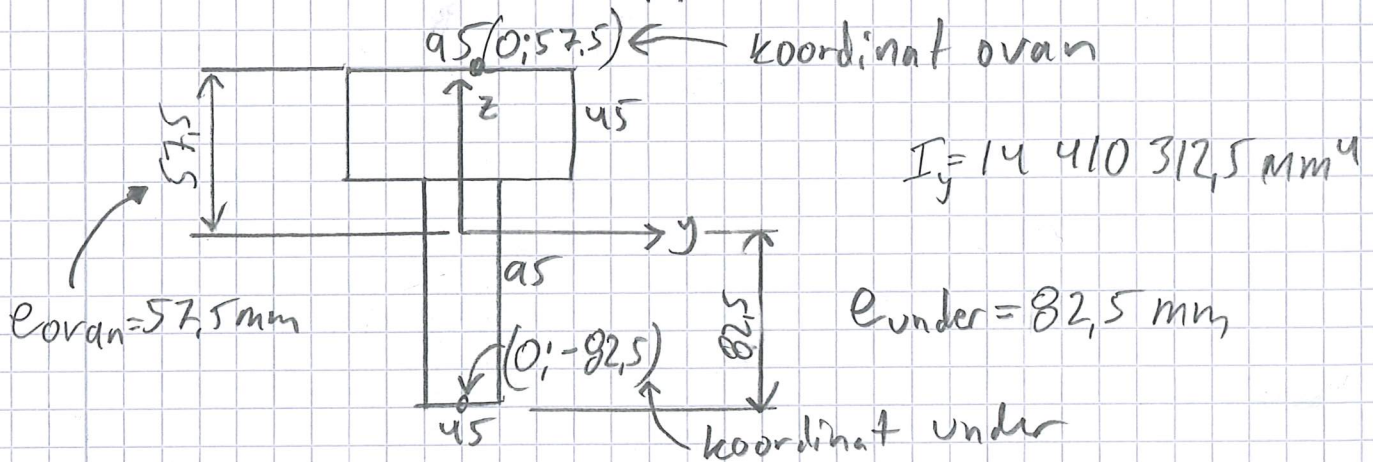 95 (0;57,5) ← koordinat ovan
z
45
57,5
I_y = 14 410 312,5 mm⁴
y
95
e_ovan = 57,5 mm
82,5
e_under = 82,5 mm
(0;-82,5)
45
koordinat under